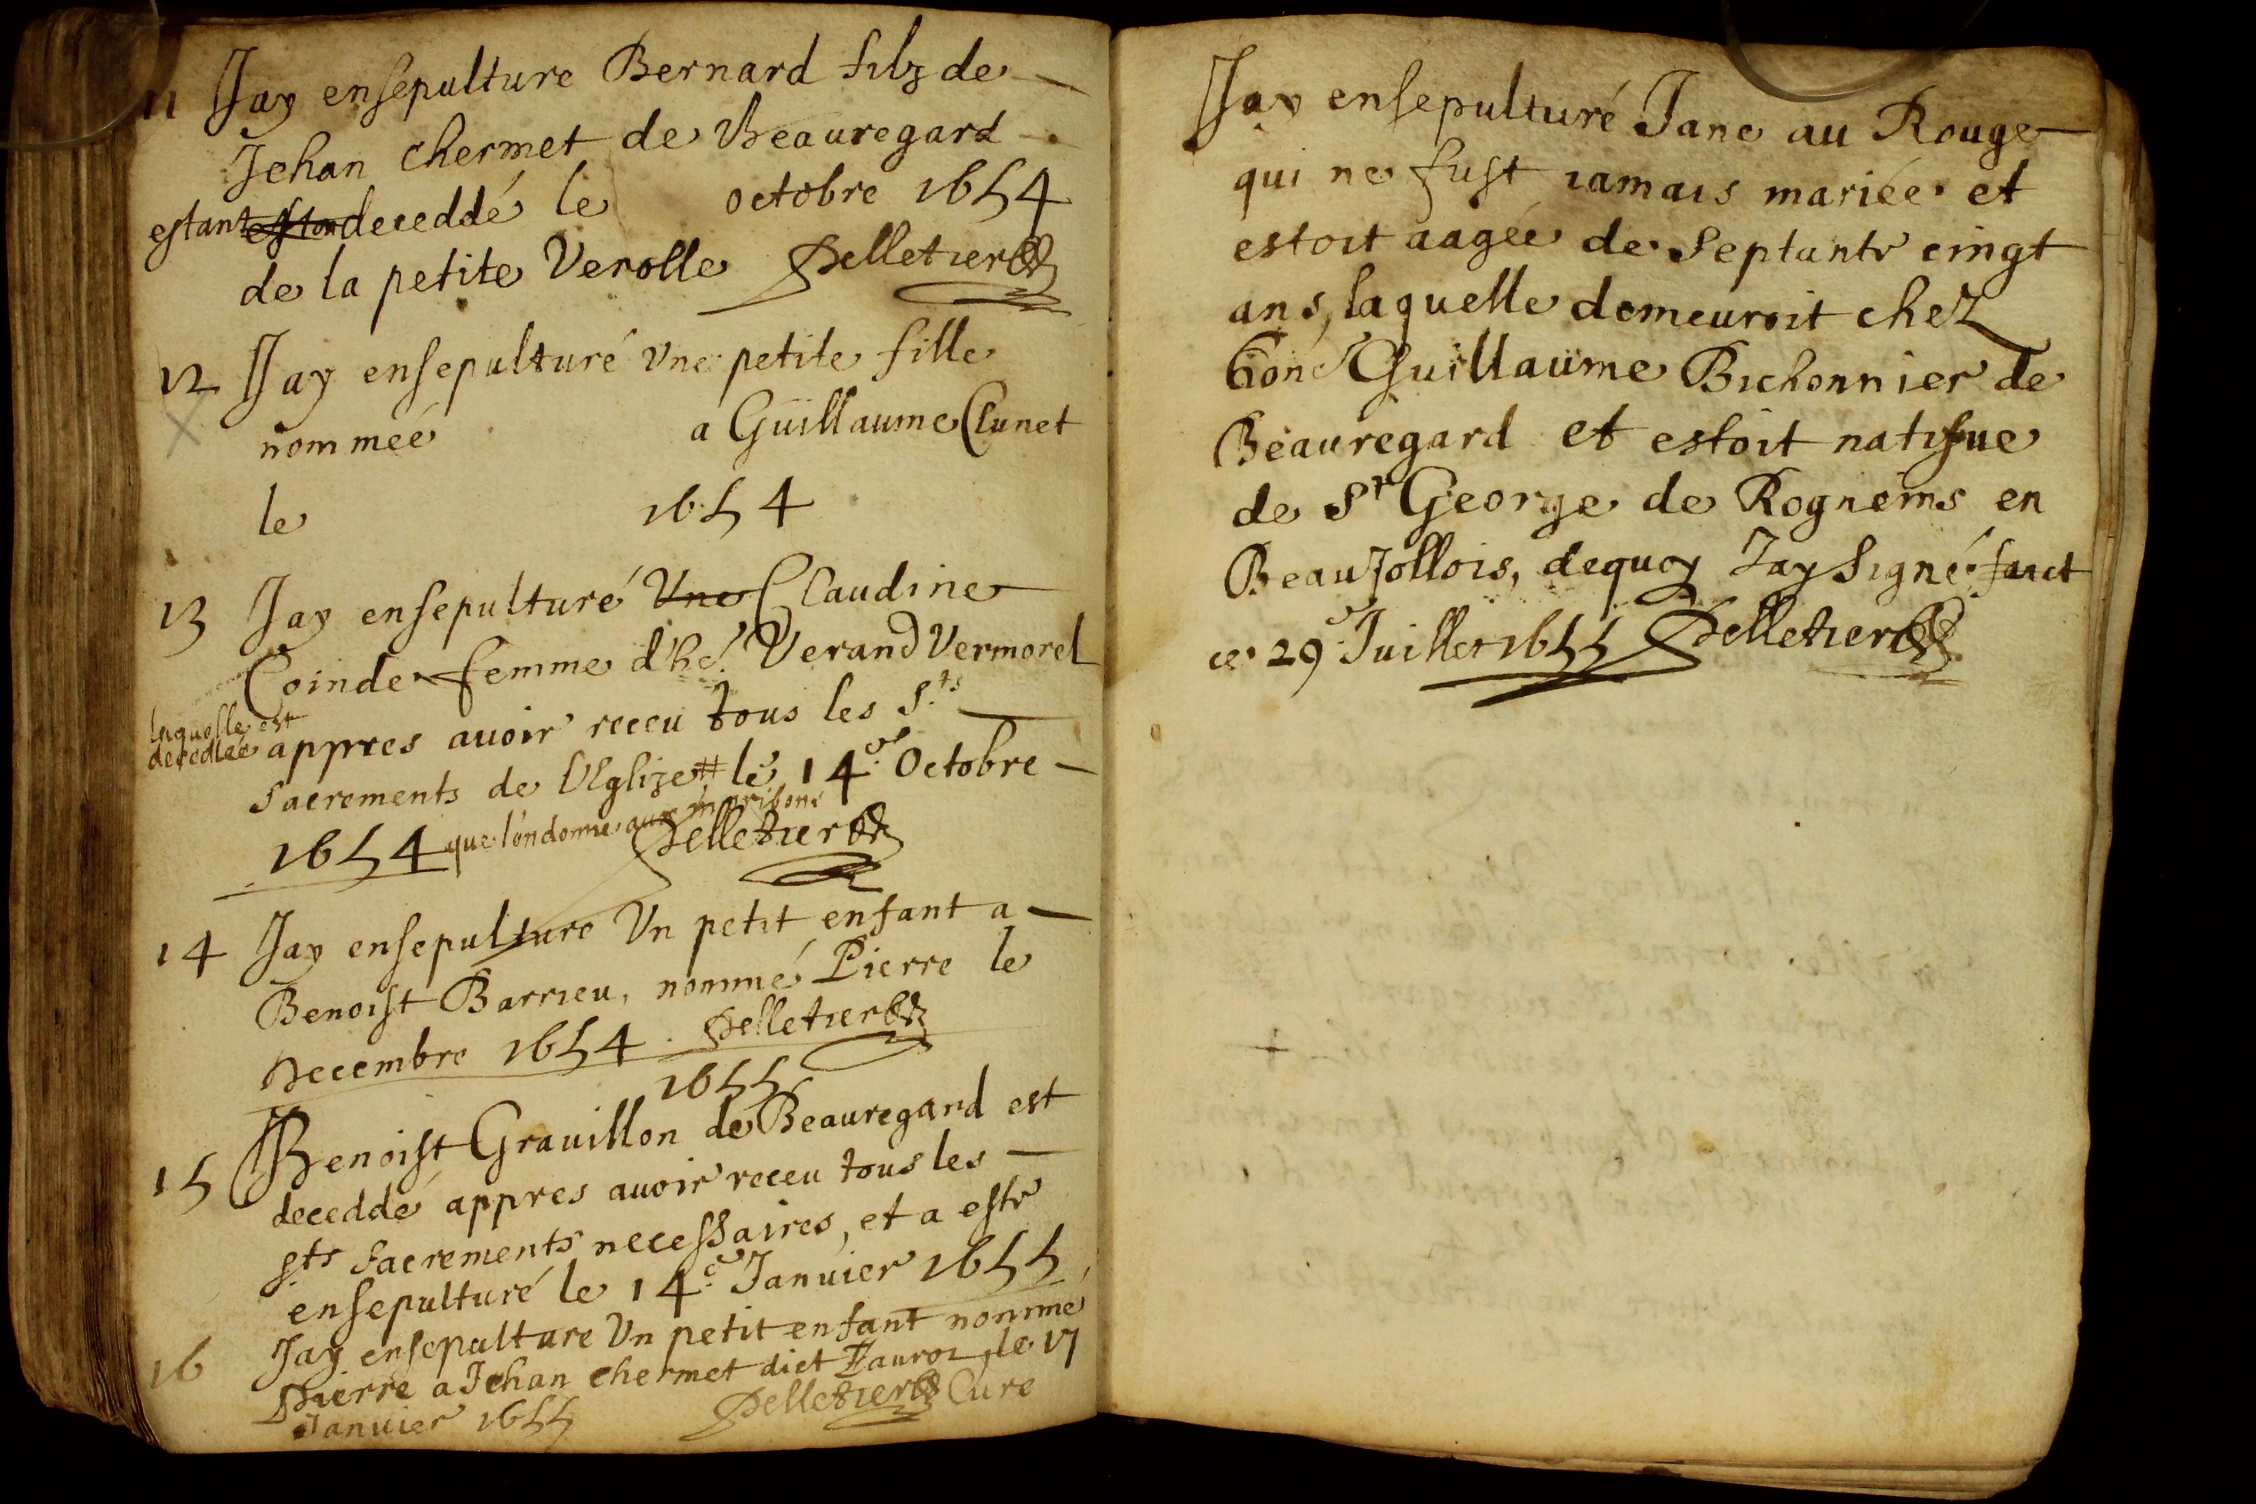 11 Jay ensepulture Bernard filz de
Jehan Chermet de Beauregard
estant deceddé le octobre 1654
de la petite Verolle Pelletier
12 Jay ensepulturé Une petite fille
nommée a Guillaume Clunet
le 1654
13 Jay ensepulturé Une Claudine
Coinde femme d'he. Verand Vermorel
laquelle est
decedlée appres avoir receu tous les S.ts
sacrements de l'Eglize # le 14e Octobre
1654 que londonne aux
Pelletier
14 Jay ensepulture Un petit enfant a
Benoist Barrieu, nommé Pierre le
Decembre 1654. Pelletier
1655
15 Benoist Gravillon de Beauregard est
deceddé appres avoir receu tous les
S.ts sacrements necessaires, et a este
ensepulturé le 14.e Janvier 1655
16 Jay ensepulture Un petit enfant nommé
Pierre a Jehan Chermet dict le 17
Janvier 1655 Pelletier Cure
Jay ensepulturé Jane au Rouge
qui ne fust iamais mariée et
estoit aagée de Septante cinqt
ans, laquelle demeuroit chez
Guillaume Bichonnier de
Beauregard et estoit natifue
de St George de Rogneins en
BeauJollois, dequoy Jay Signé faict
ce 29e Juillet 1655 Pelletier